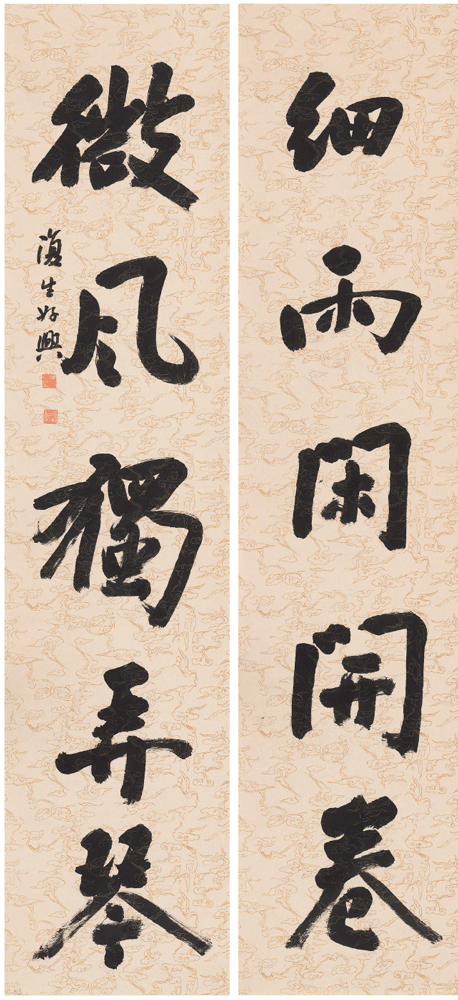 細雨閑開卷
微風獨弄琴
復生好興